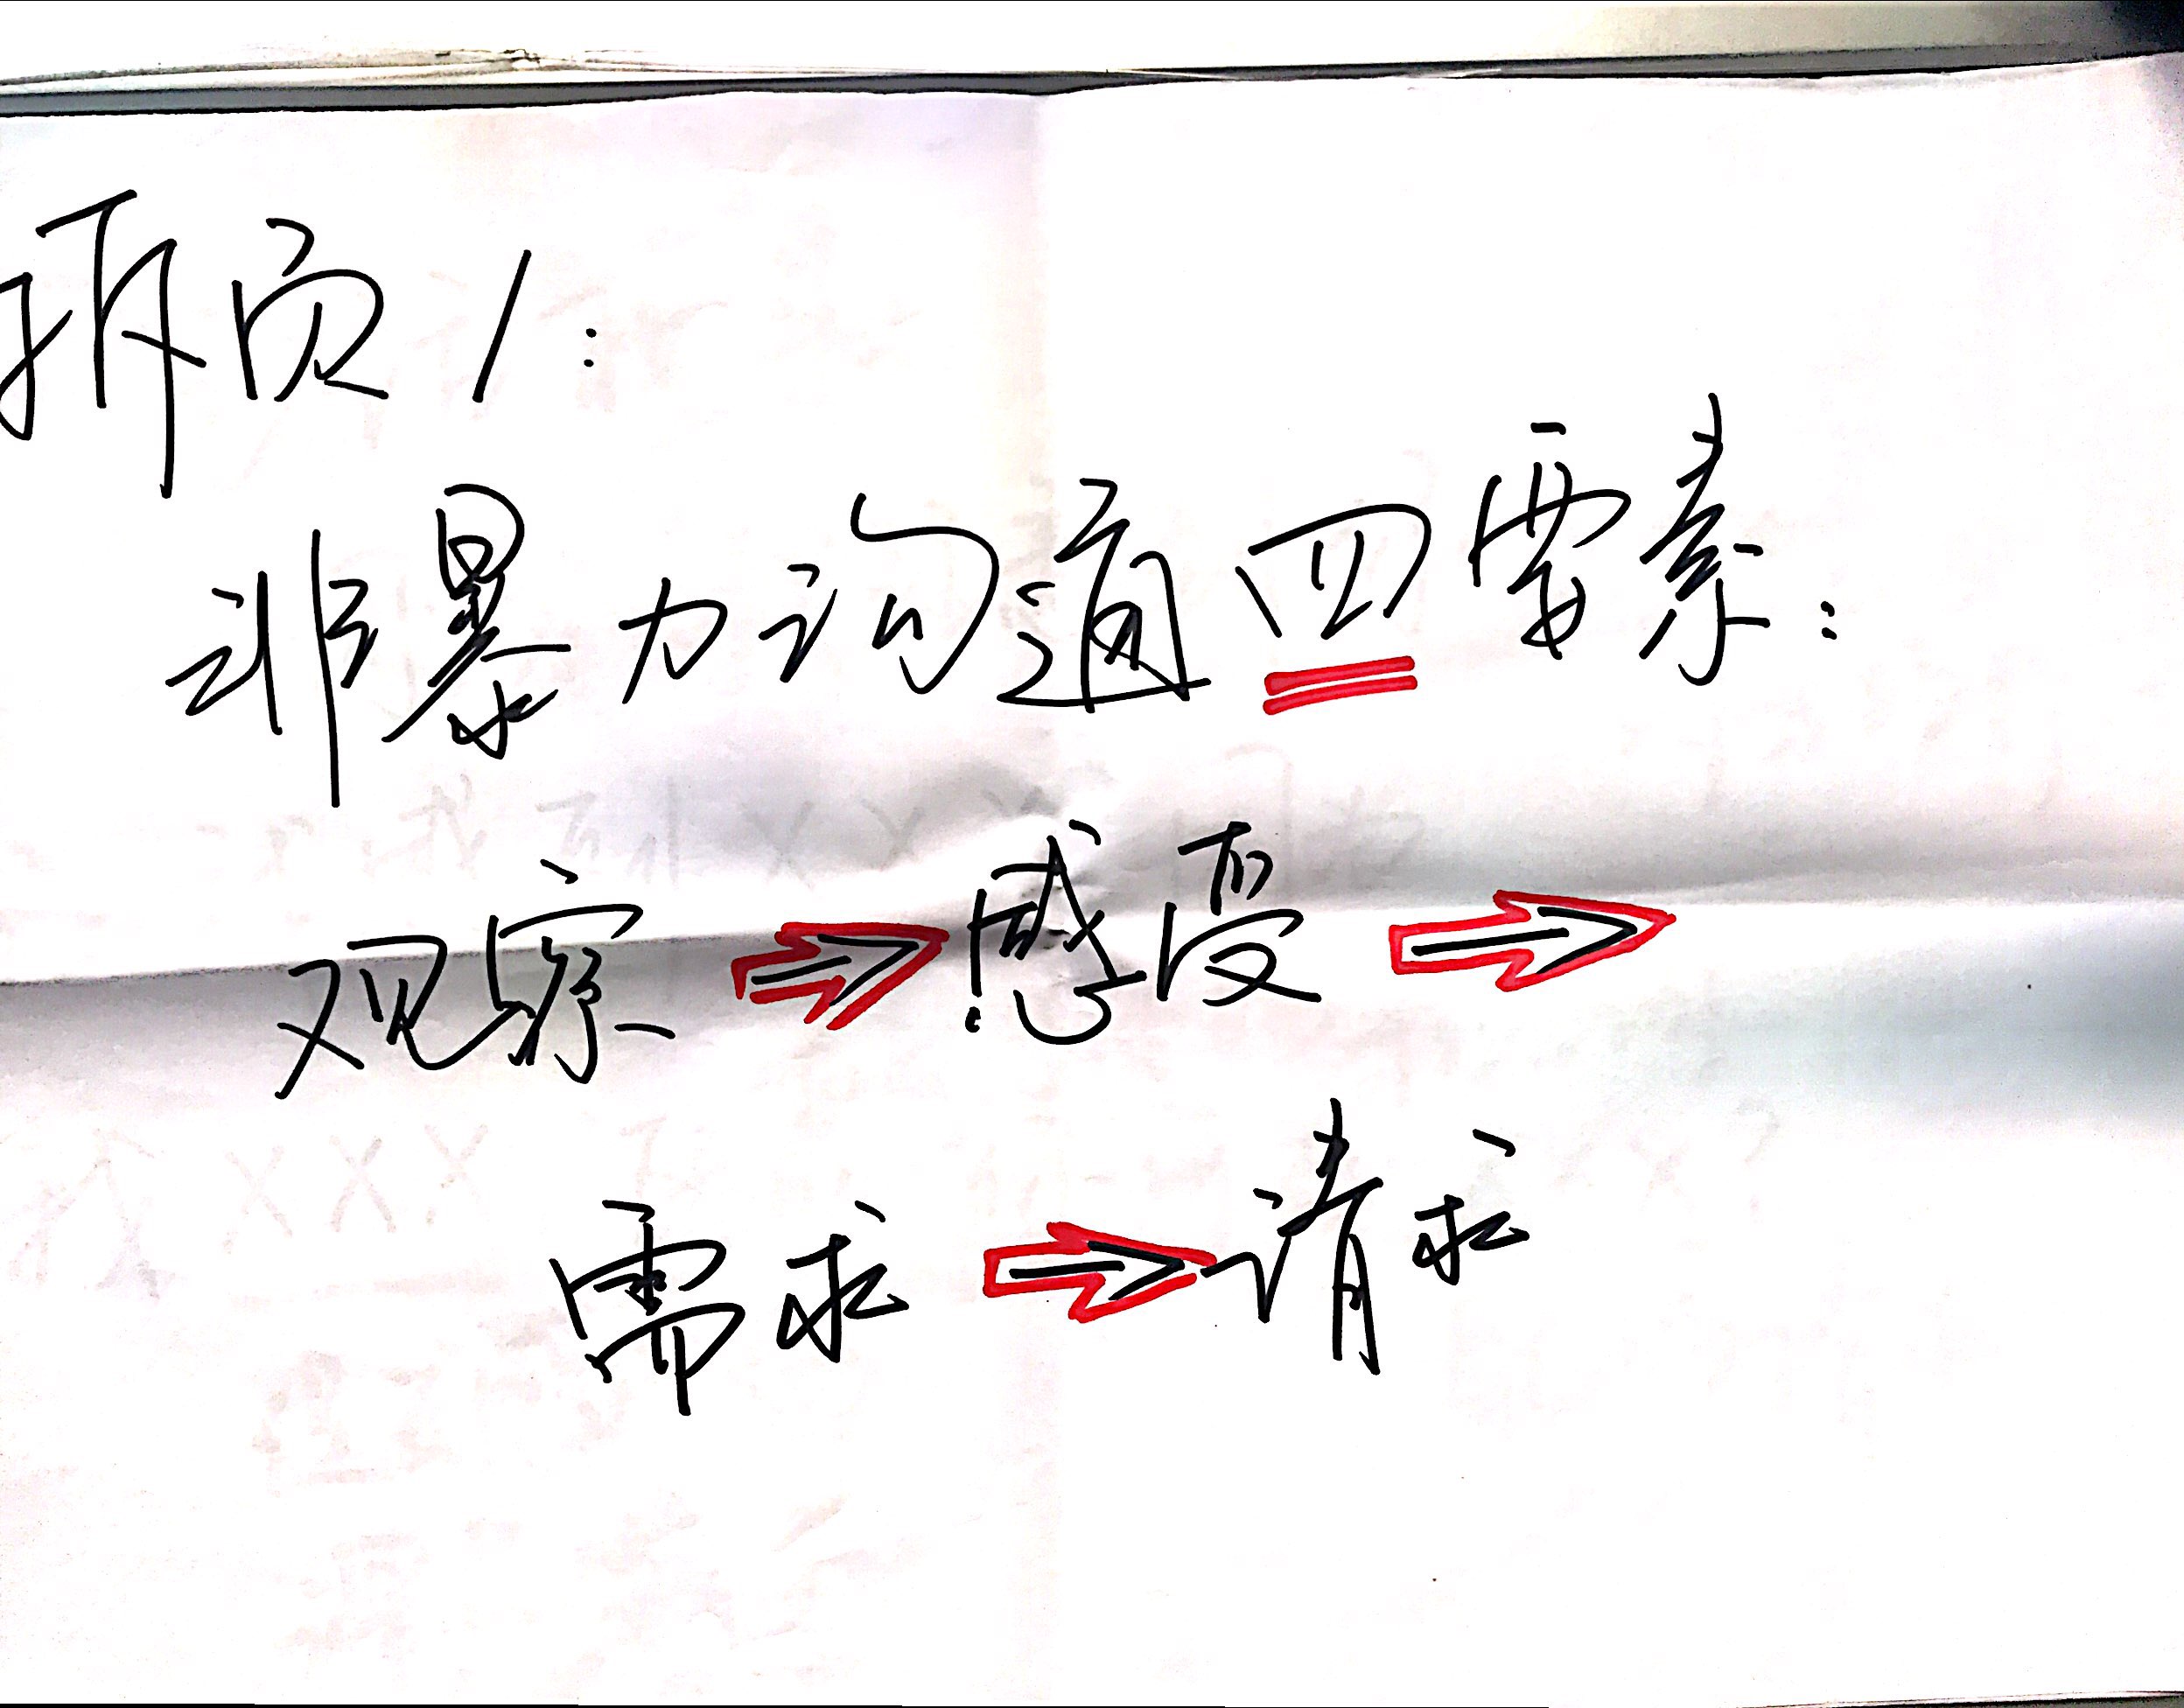 拆页1：
非暴力沟通四要素：
观察⇒感受⇒
需求⇒请求